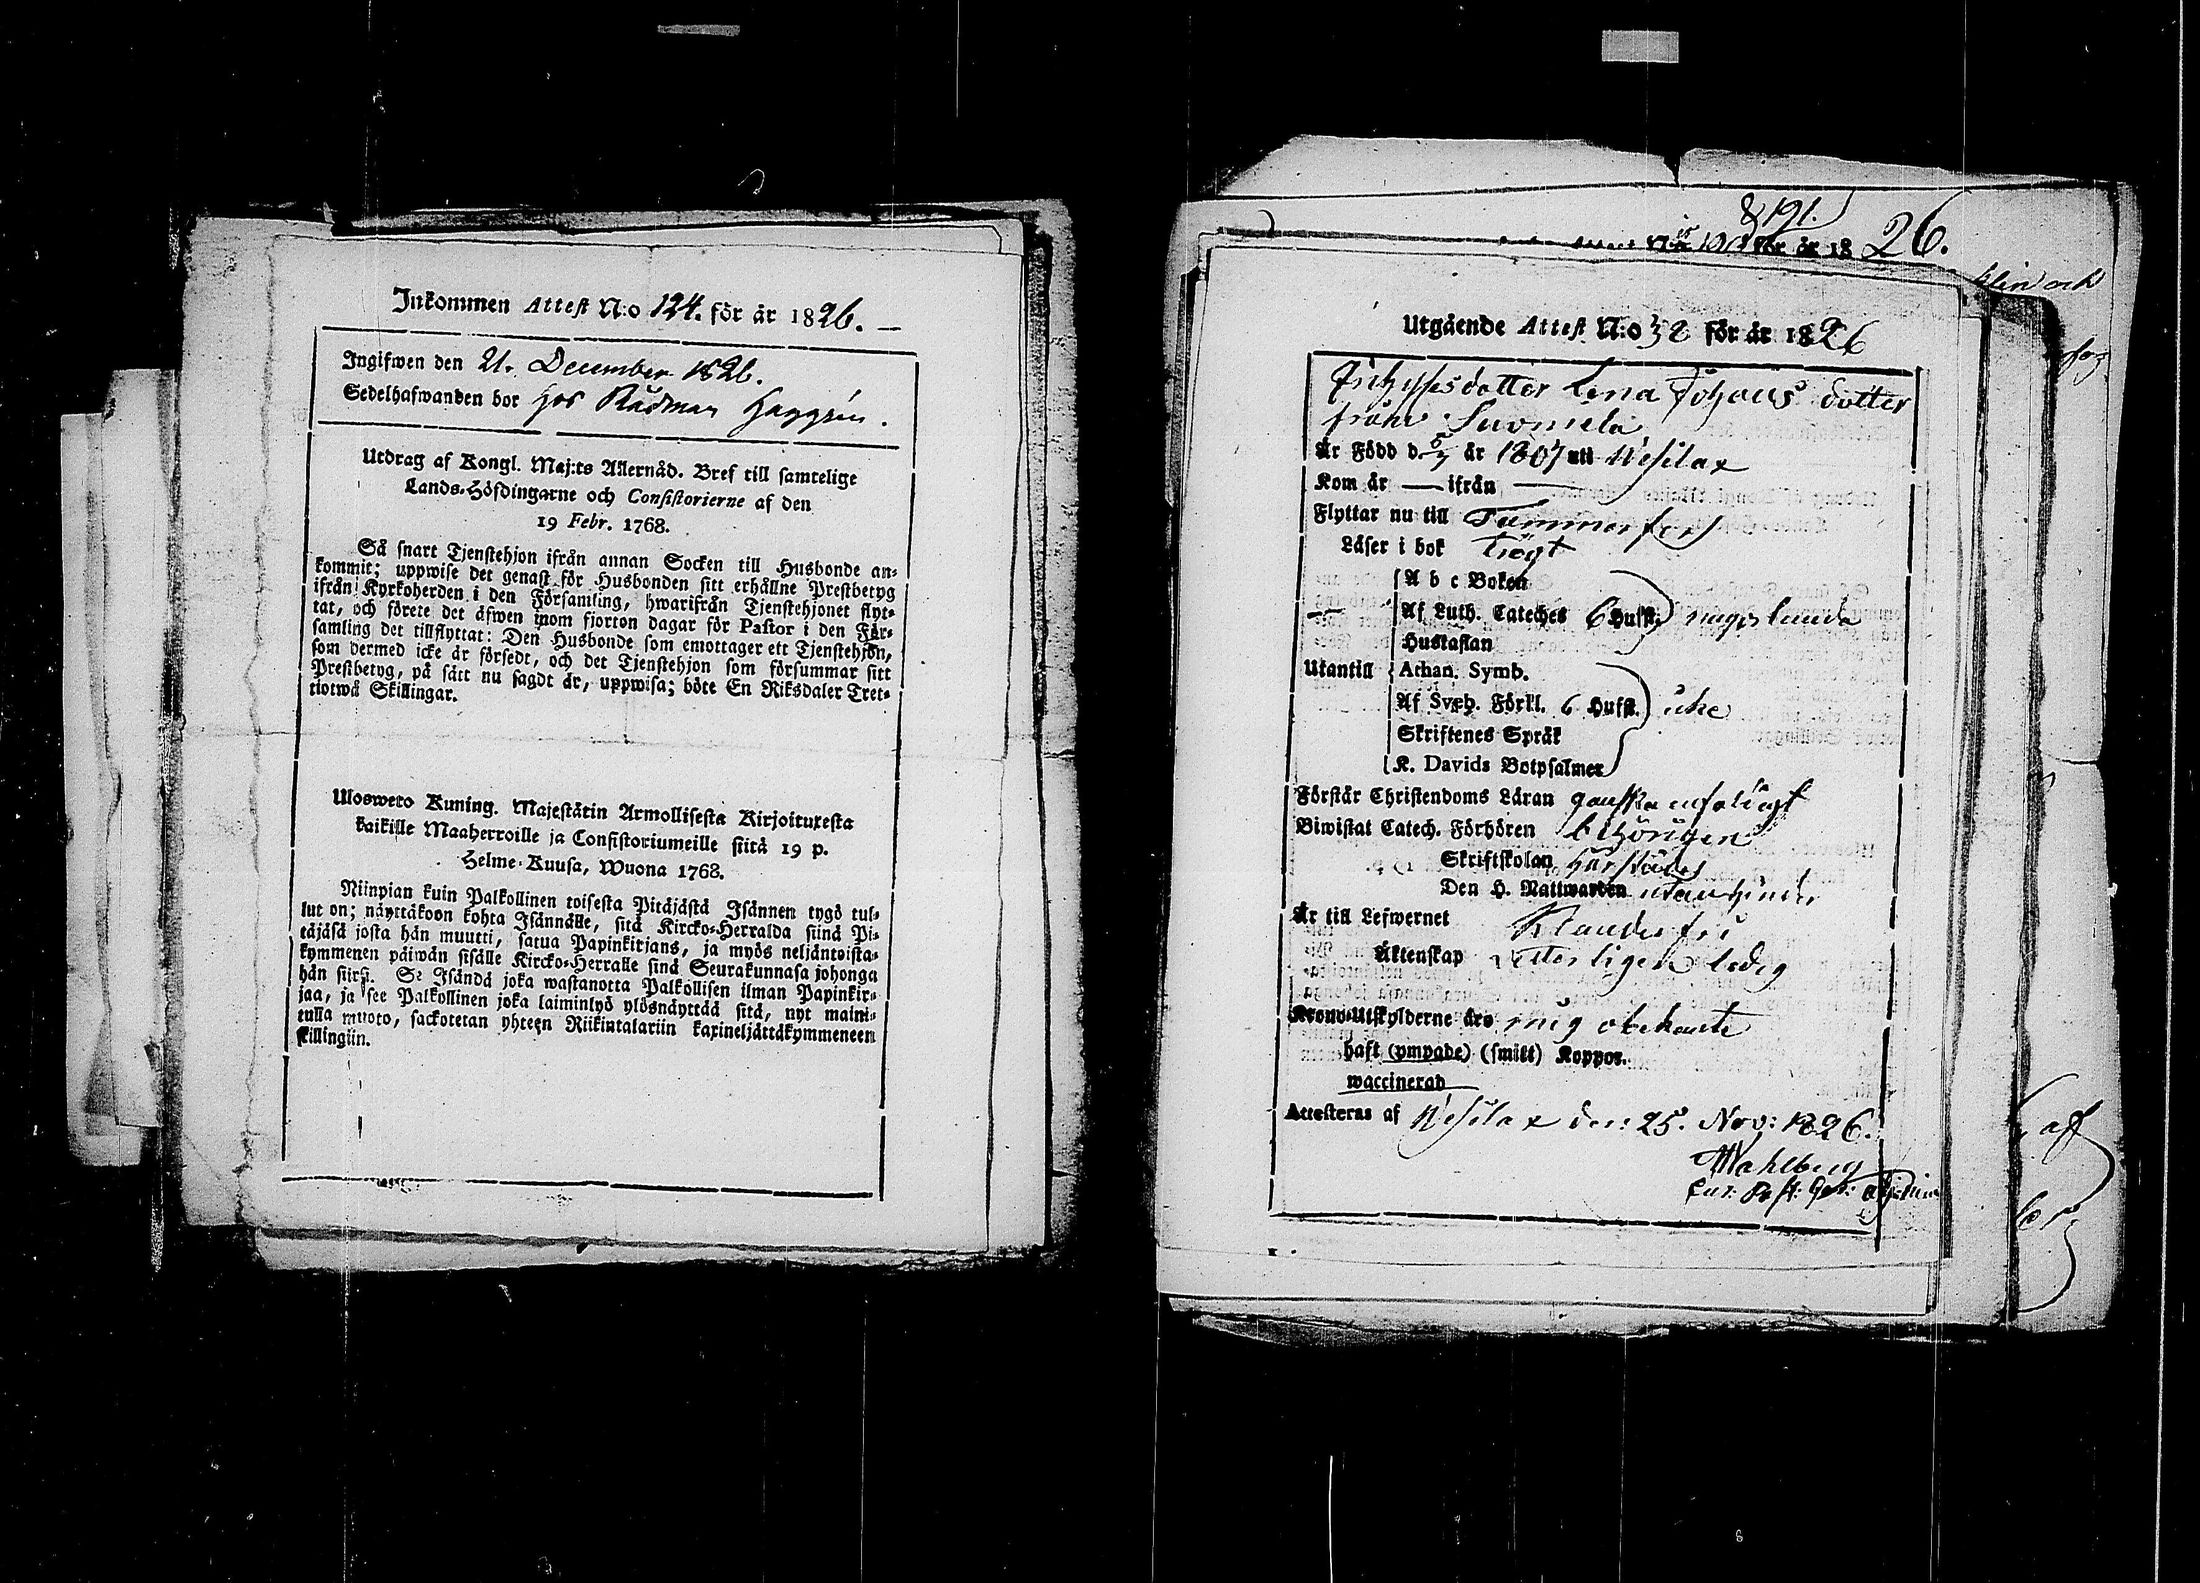 Inkommen Attest N:o 124. för år 1826. —
Ingifwen den 21. December 1826.
Sedelhafwanden bor hos Rådman Haggrén.
Utdrag af Kongl. Maj:ts Allernåd. Bref till samtelige
Lands-Höfdingarne och Consistorierne af den
19 Febr. 1768.
Så snart Tjenstehjon ifrån annan Socken till Husbonde an-
kommit; uppwise det genast för Husbonden sitt erhållne Prestbetyg
ifrån Kyrkoherden i den Församling, hwarifrån Tjenstehjonet flyt-
tat, och förete det äfwen inom fjorton dagar för Pastor i den För-
samling det tillflyttat: Den Husbonde som emottager ett Tjenstehjon,
som dermed icke är försedt, och det Tjenstehjon som försummar sitt
Prestbetyg, på sätt nu sagdt är, uppwisa; böte En Riksdaler Tret-
tiotwå Skillingar.
Uloswето Kuning. Majestätin Armollisesta Kirjoituxesta
kaikille Maaherroille ja Consistoriumeille siitä 19 p.
Helme-Kuusa, Wuona 1768.
Niinpian kuin Palkollinen toisesta Pitäjästä Isännen tygö tul-
lut on; näyttäkoon kohta Isännälle, sitä Kircko-Herralda siinä Pi-
täjäsä josta hän muutti, satua Papinkirjans, ja myös neljäntoista-
kymmenen päiwän sisälle Kircko-Herralle sinä Seurakunnasa johonga
hän siirsi. Se Isändä joka wastanotta Palkollisen ilman Papinkir-
jaa, ja see Palkollinen joka laiminlyö ylösnäyttää sitä, nyt maini-
tulla muoto, sackotetan yhteen Riikintalariin kaxineljättäkymmeneen
skillingiin.
& 191.
för år 1826.
Utgående Attest N:o 38 för år 1826
dotter Lena Johans dotter
från Suomela
Är Född d. 5/7 år 1807 uti Wesilax
Kom år — ifrån —
Flyttar nu till Tammerfors
Läser i bok trögt
A b c Boken
Af Luth. Cateches 6 Hufst.
Hustaflan
Utantill
Athan. Symb.
Af Sveb. Förkl. 6 Hufst. icke
Skriftenes Språk
K. Davids Botpsalmer
Förstår Christendoms Läran ganska enfaldigt
Biwistat Catech. Förhören behörigen
Skriftskolan härstädes
Den H. Nattwarden utan hinder
Är till Lefwernet Klanderfri
Äktenskap ledig
Krono-Utskylderne äro mig obekante
haft (ympade) (smitt) Koppor.
waccinerad
Attesteras af Wesilax den 25. Nov: 1826.
Wahlberg